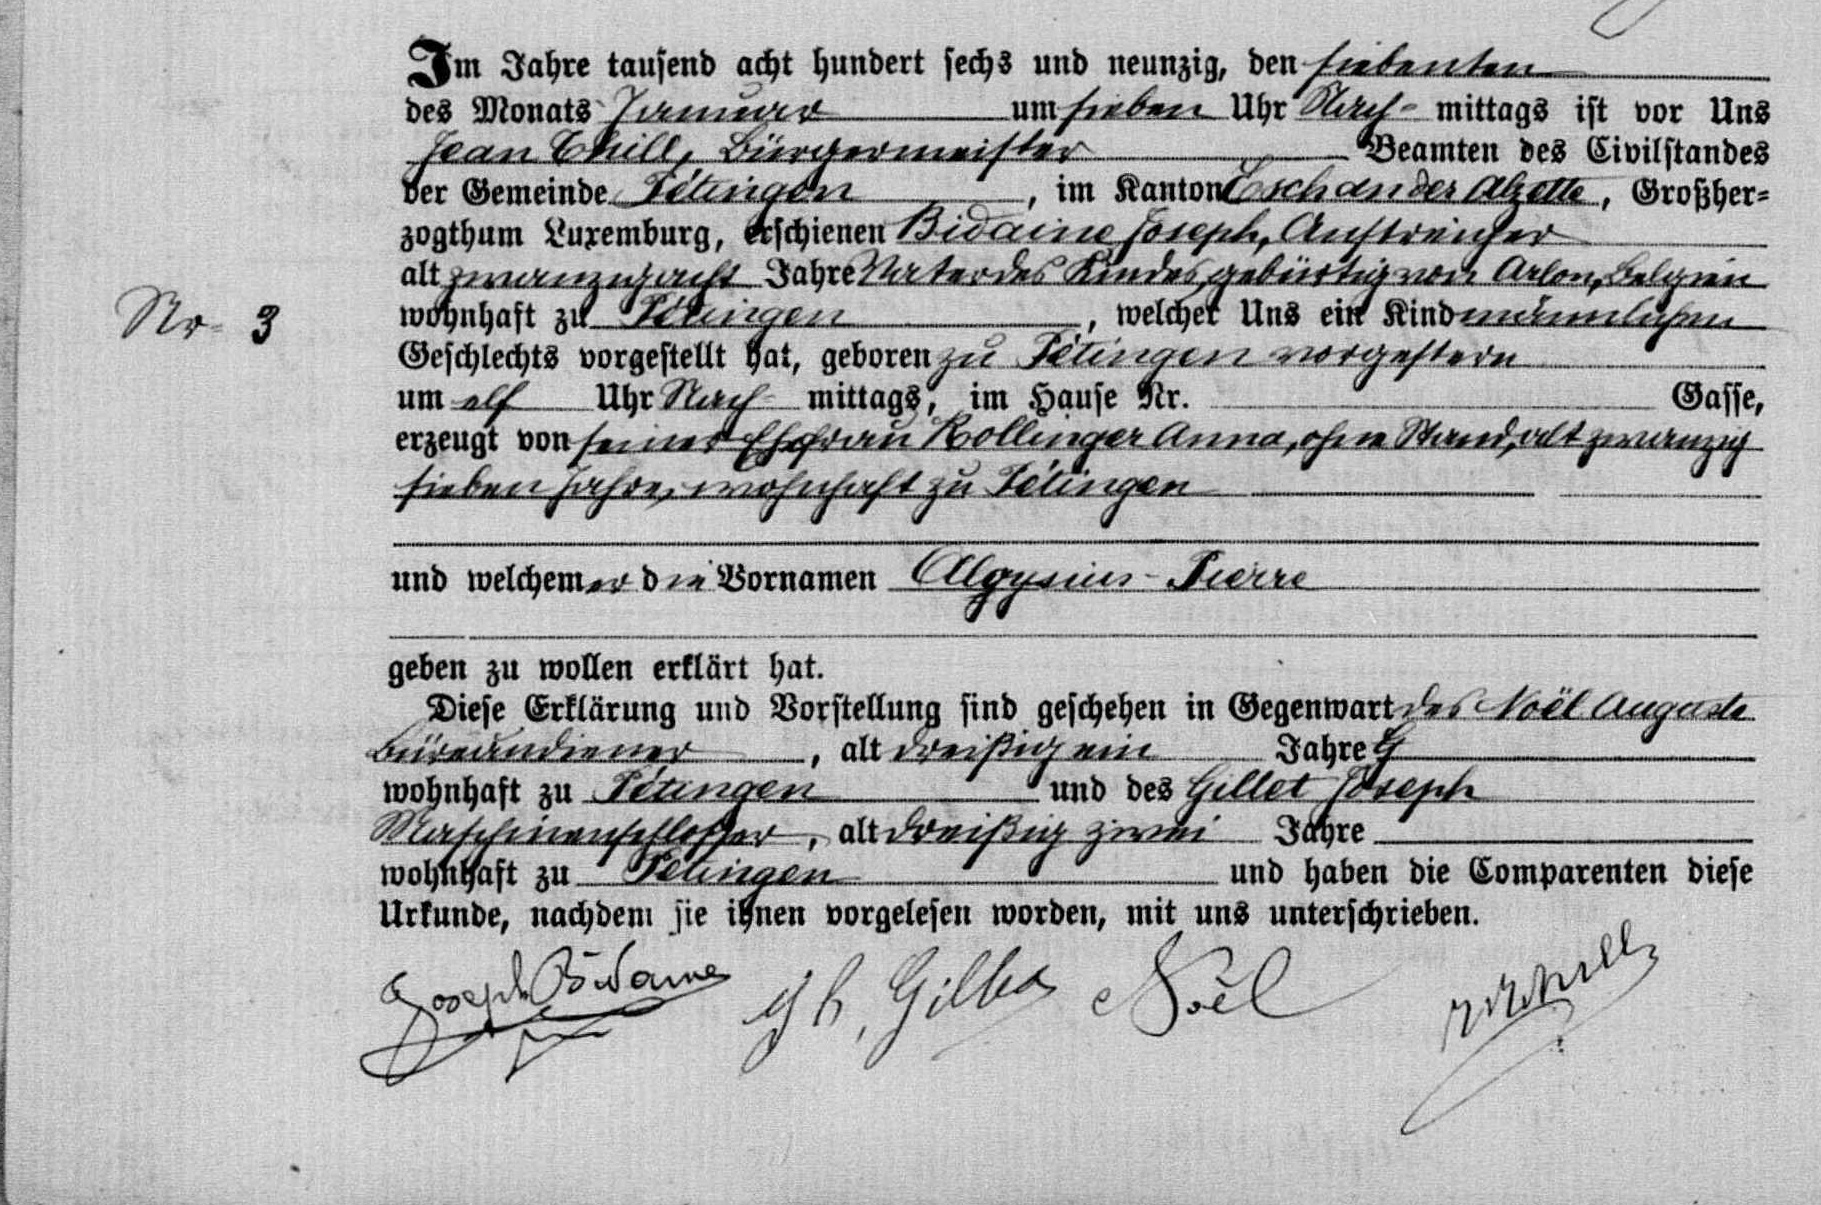 Im Jahre tausend acht hundert sechs und neunzig, den siebenten
des Monats Januar um sieben Uhr Nach- mittags ist vor Uns
Jean Thill, Bürgermeister Beamten des Civilstandes
der Gemeinde Petingen, im Kanton Esch an der Alzette, Großher=
zogthum Luxemburg, erschienen Bidaine Joseph, Anstreicher
alt zwanzigacht Jahre Vater des Kindes, gebürtig von Arlon, Belgien
Nr 3
wohnhaft zu Petingen, welcher Uns ein Kind männlichen
Geschlechts vorgestellt hat, geboren zu Petingen vorgestern
um elf Uhr Nach- mittags, im Hause Nr. Gasse,
erzeugt von seiner Ehefrau Rollinger Anna, ohne Stand, alt zwanzig
sieben Jahre, wohnhaft zu Petingen
und welchem er die Vornamen Aloysius-Pierre
geben zu wollen erklärt hat.
Diese Erklärung und Vorstellung sind geschehen in Gegenwart des Noël Auguste
Büreaudiener, alt dreißig ein Jahre
wohnhaft zu Petingen und des Gillet Joseph
Maschinenschlosser, alt dreißig zwei Jahre
wohnhaft zu Petingen und haben die Comparenten diese
Urkunde, nachdem sie ihnen vorgelesen worden, mit uns unterschrieben.
Joseph Bidaine Noël